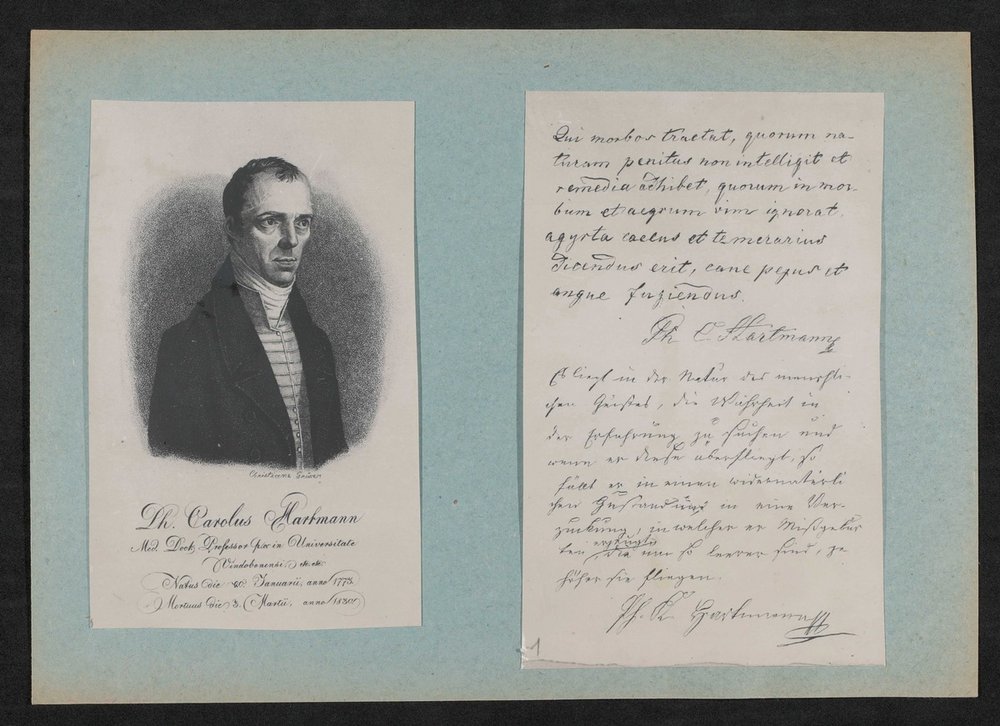 Christiana
Ph. Carolus Hartmann
Med. Doct. Professor p. x. in Universitate
Vindobonensi, etc. etc.
Natus die 20. Januarii, anno 1773.
Mortuus die 3. Martii, anno 1830.
Qui morbos tractat, quorum na-
turam penitus non intelligit et
remedia adhibet, quorum in mor-
bum et aegrum vim ignorat,
agyrta caecus et temerarius
dicendus erit, cane pejus et
angue fugiendus.
Ph C Hartmann
Es liegt in der Natur des menschli-
chen Geistes, die Wahrheit in
der Erfahrung zu suchen und
wenn er diese überfliegt, so
fällt er in einen widernatürli
chen Zustand, in eine Ver-
zuckung, in welcher er Mißgebur
ten erzeugt, die um so leerer sind, je
höher sie fliegen.
Ph. K Hartmann
1